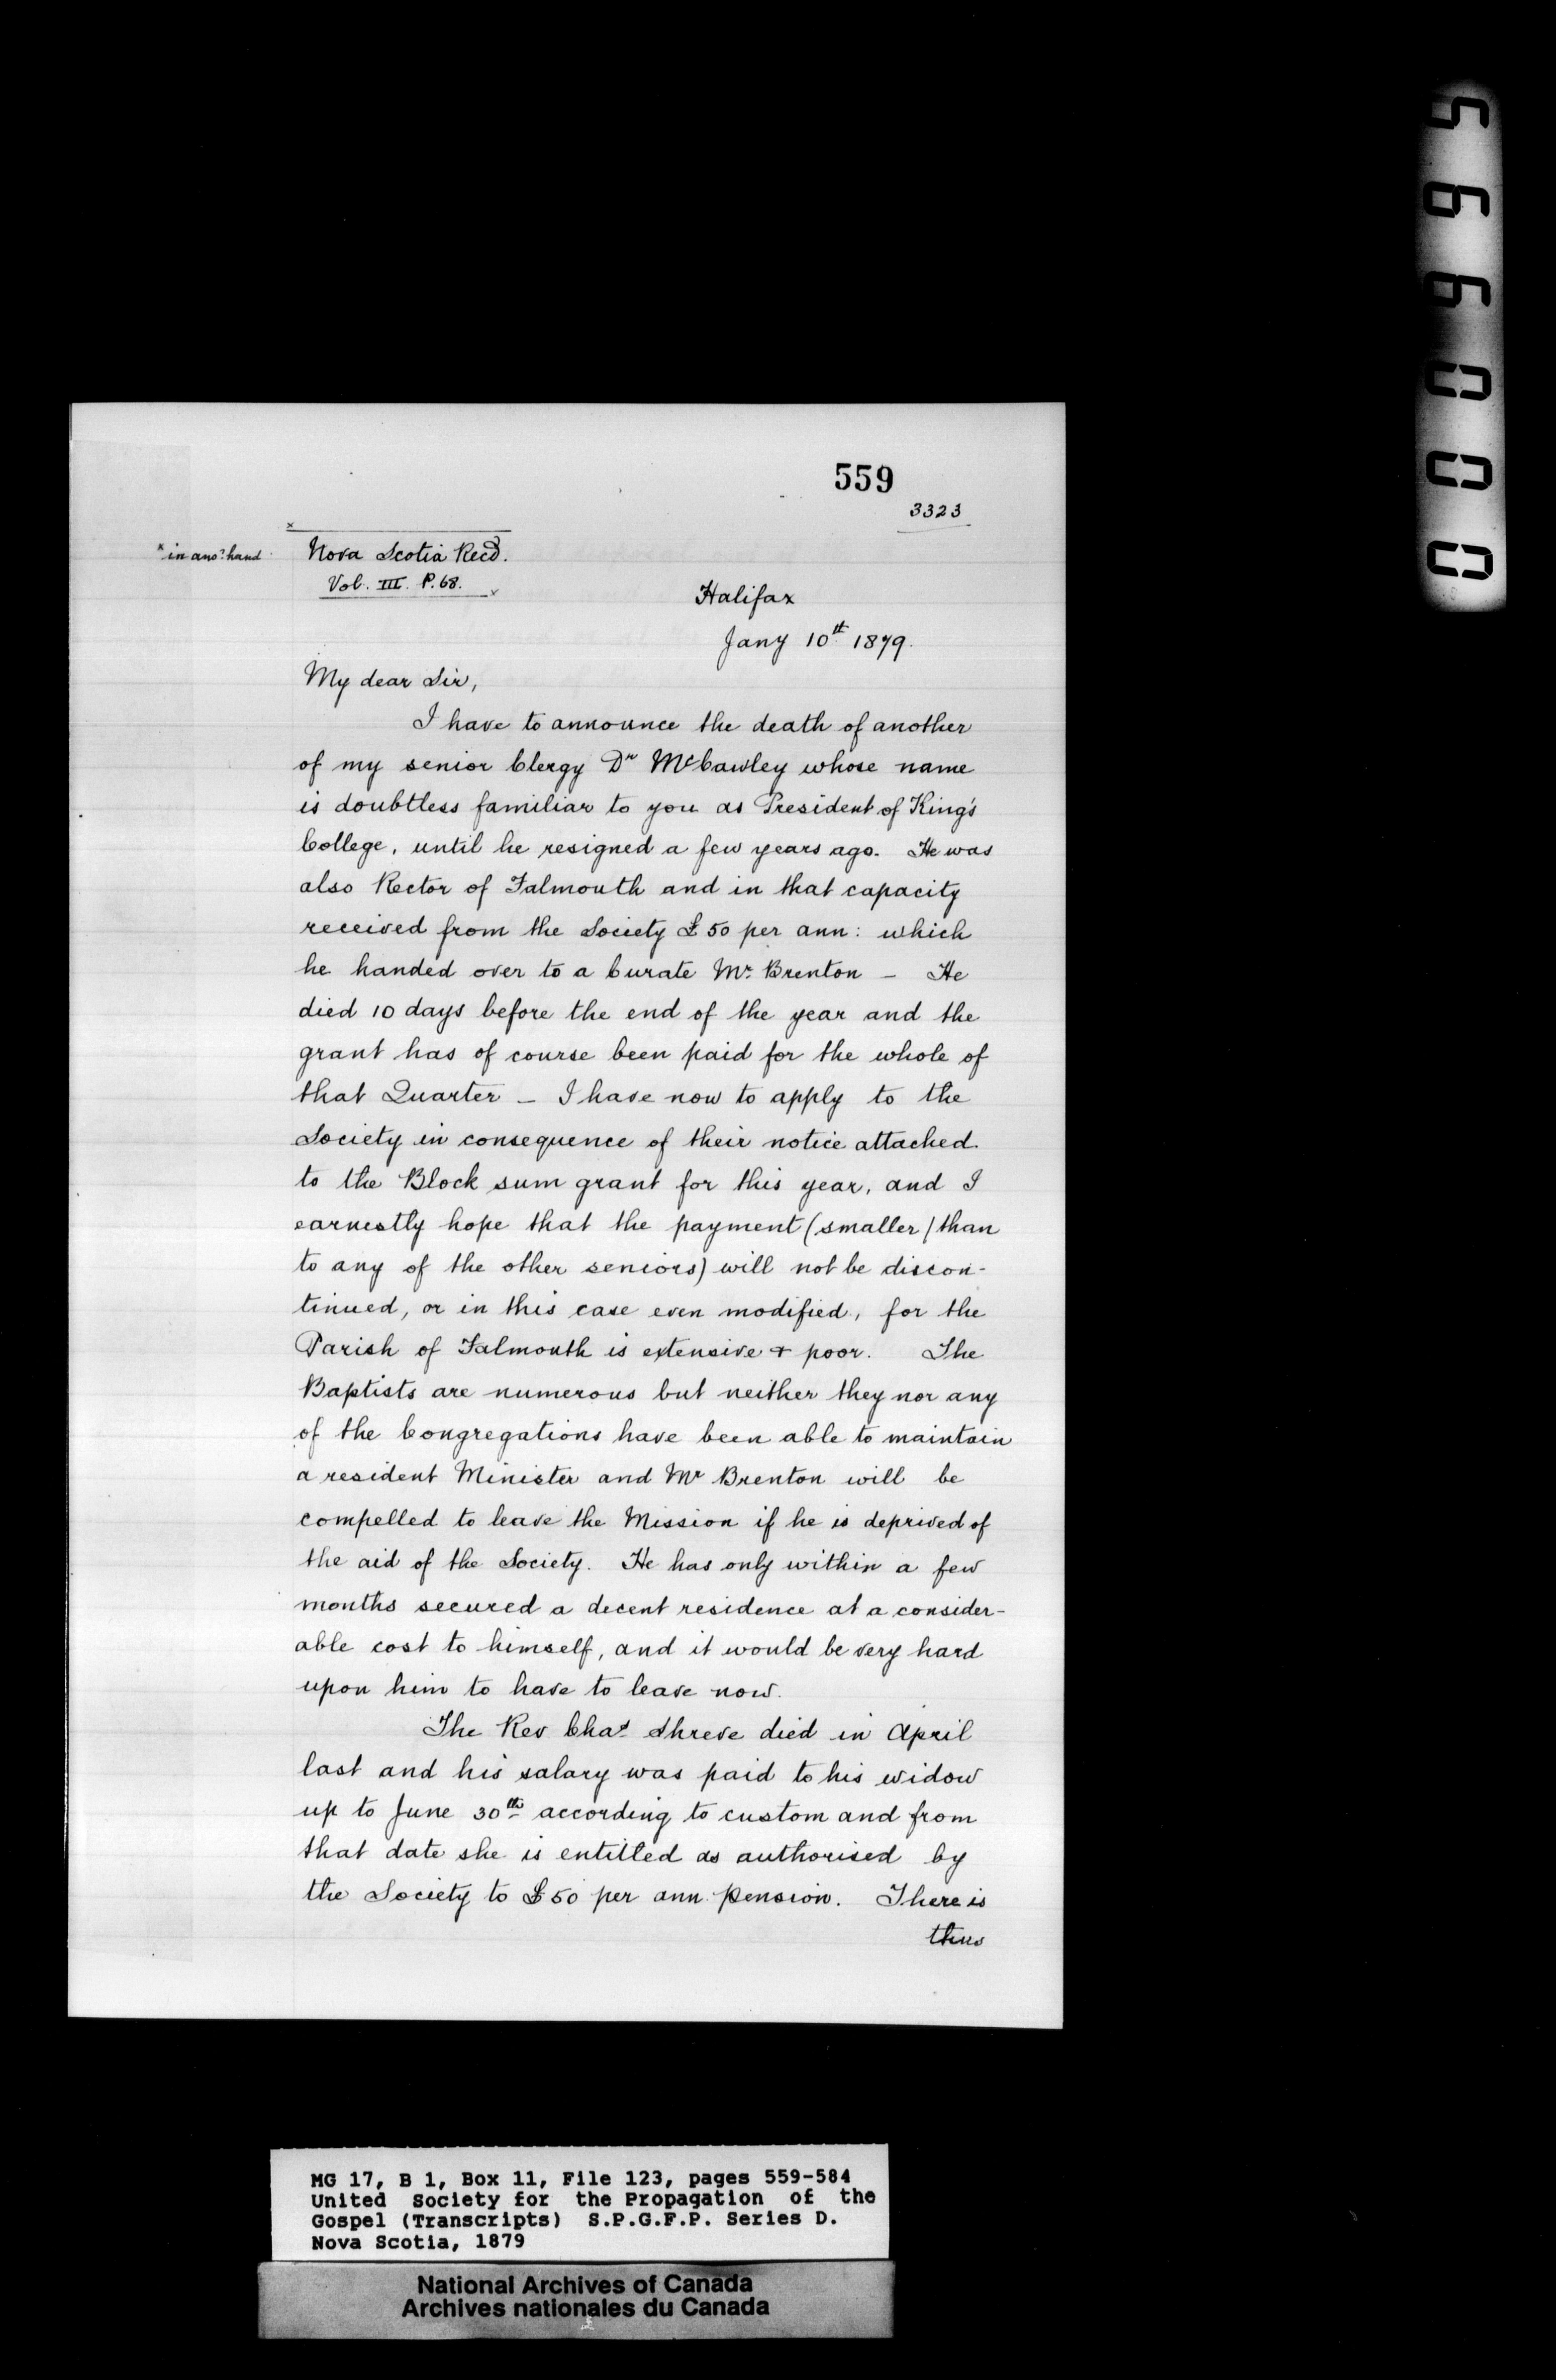 559
3323
x
x in anoʳ hand
Nova Scotia Recd.
Vol. III. P. 68. x
Halifax
Jany 10th 1879.
My dear Sir,
I have to announce the death of another
of my senior Clergy Dr McCawley whose name
is doubtless familiar to you as President of King's
College, until he resigned a few years ago. He was
also Rector of Falmouth and in that capacity
received from the Society £50 per ann: which
he handed over to a Curate Mr. Brenton – He
died 10 days before the end of the year and the
grant has of course been paid for the whole of
that Quarter – I have now to apply to the
Society in consequence of their notice attached
to the Block sum grant for this year, and I
earnestly hope that the payment (smaller / than
to any of the other seniors) will not be discon-
tinued, or in this case even modified, for the
Parish of Falmouth is extensive & poor. The
Baptists are numerous but neither they nor any
of the Congregations have been able to maintain
a resident Minister and Mr Brenton will be
compelled to leave the Mission if he is deprived of
the aid of the Society. He has only within a few
months secured a decent residence at a consider-
able cost to himself, and it would be very hard
upon him to have to leave now.
The Rev Chas Shreve died in April
last and his salary was paid to his widow
up to June 30th according to custom and from
that date she is entitled as authorised by
the Society to £50 per ann. pension. There is
thus
MG 17, B 1, Box 11, File 123, pages 559-584
United Society for the Propagation of the
Gospel (Transcripts) S.P.G.F.P. Series D.
Nova Scotia, 1879
National Archives of Canada
Archives nationales du Canada
000995